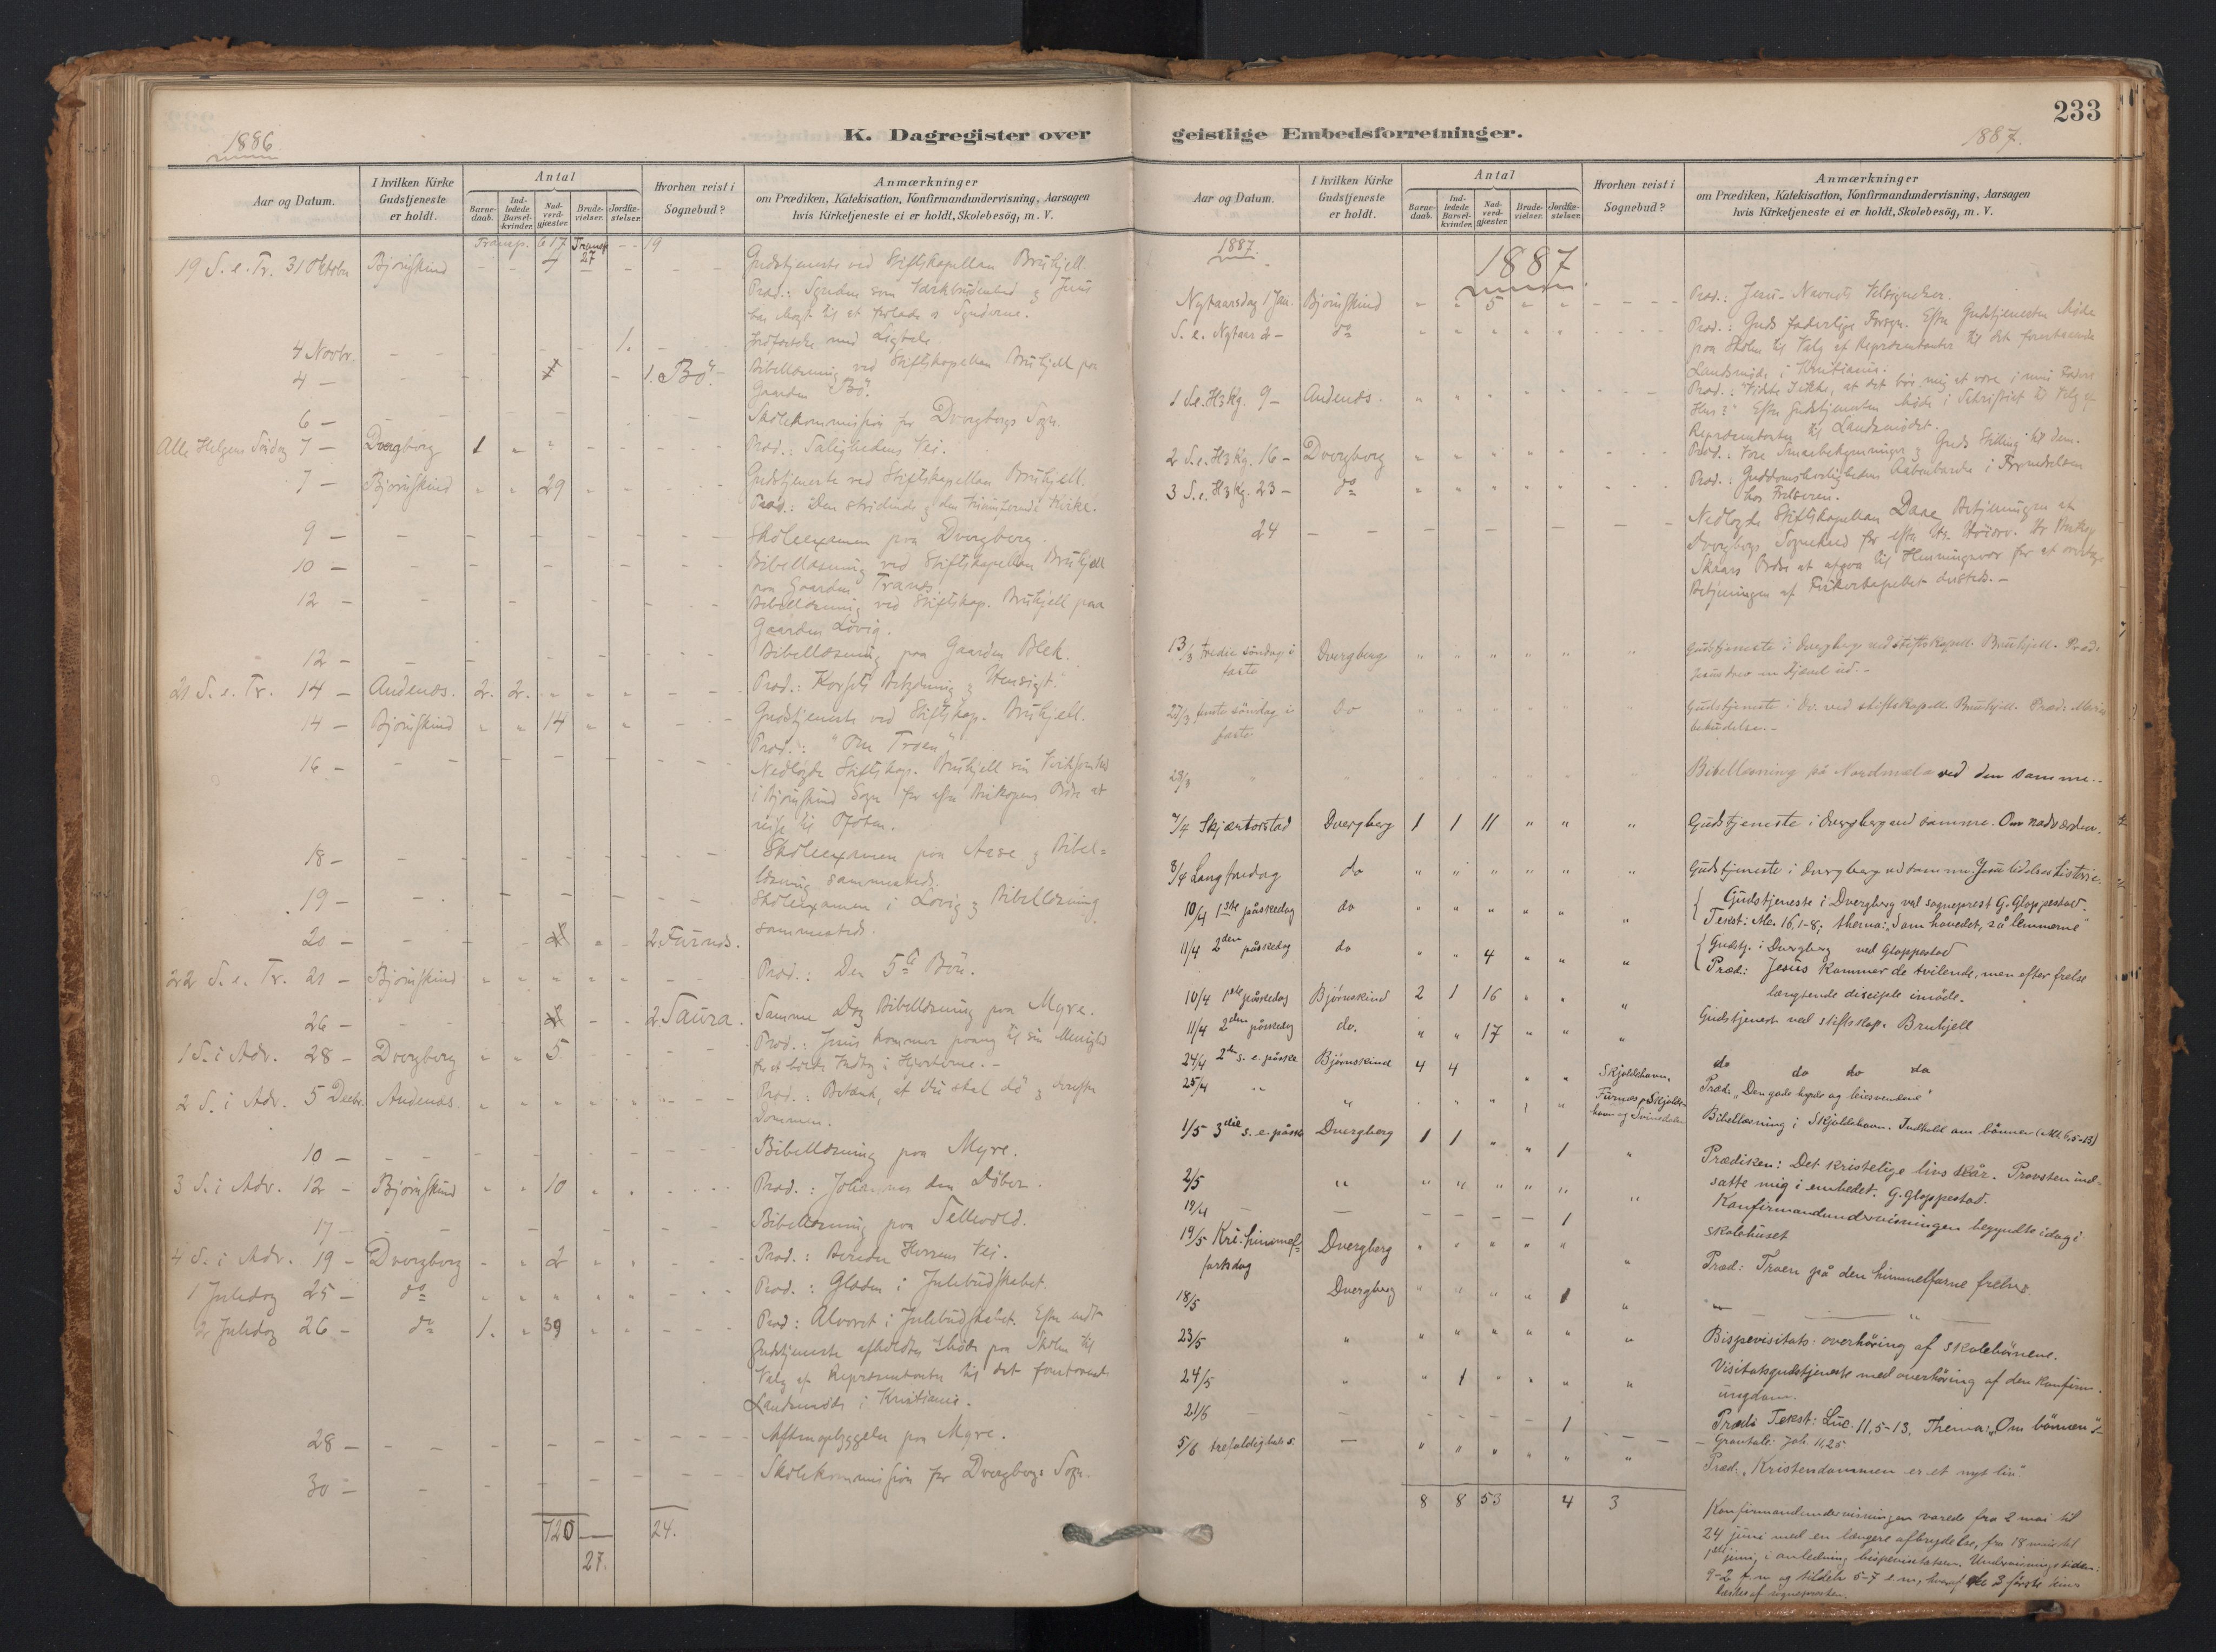 1886
K. Dagregister over
Aar og Datum.
I hvilken Kirke Gudstjeneste er holdt.
Antal
Barnedaab.
Indledede Barselkvinder.
Nadverdgjester.
Brudevielser.
Jordfæstelser.
Hvorhen reist i Sognebud?
Anmærkninger
om Prædiken, Katekisation, Konfirmandundervisning, Aarsagen
hvis Kirketjeneste ei er holdt, Skolebesög, m. V.
Transp. 617 Transp 27 - - 19
19 S. e. Tr. 31 Oktober Bjørnskind - - 4 - - - Gudstjeneste ved Stiftskapellan Bruhjell
har Magt til at forlade os Synderne.
4 Novbr. - - - - - 1. -
4 - - - - 1. Bö. - Bibellæsning ved Stiftskapellan Bruhjell paa
Gaarden Bö.
6 - - - Skolekommission for Dverbergs Sogn.
Alle Helgens Søndag 7 - Dverberg 1 Præd.: Salighedens Vei.
7 - Bjørnskind 29 Gudstjeneste ved Stiftskapellan Bruhjell.
Præd.: Den stridende og den triumferende Kirke.
9 - Skoleexamen paa Dverberg.
10 - Bibellæsning ved Stiftskapellan Bruhjell
paa Gaarden Tranes.
12 - Bibellæsning ved Stiftskap. Bruhjell paa
Gaarden Lovig.
12 - Bibellæsning paa Gaarden Blek.
21 S. e. Tr. 14 - Andenæs. 2. 2. Præd.: Korsets Betydning og Hensigt.
14 - Bjørnskind 14 Gudstjeneste ved Stiftskap. Bruhjell.
Præd.: "Om Troen"
16 - Nedlagde Stiftskap. Bruhjell sin Virksomhed
i Bjørnskind Sogn for efter Biskopens Ordre at
reise til Ofoten.
18 - Skoleexamen paa Aase og Bibel=
læsning sammesteds.
19 - Skoleexamen i Lovig og Bibellæsning
sammesteds.
20 - 2 Furnæs.
22 S. e. Tr. 21 - Bjørnskind Præd.: Den 5te Bön.
26 - 2 Saura. Samme Dag Bibellæsning paa Myre.
1 S. i Adv. 28 - Dverberg 5 Præd.: Jesus kommer paany til sin Menighed
for at holde Indtog i Hjerterne. -
2 S. i Adv. 5 Decbr. Andenæs Præd.: Betænk, at du skal dø og derefter
Dommen.
10 - Bibellæsning paa Myre.
3 S. i Adv. 12 - Bjørnskind 10 Præd.: Johannes den Döber.
17 - Bibellæsning paa Sellevold.
4 S. i Adv. 19 - Dverberg 2 Præd.: Bereder Herrens Vei.
1 Juledag 25 - do Præd.: Glæden i Julebudskabet.
2 Juledag 26 - do 1. 39 Præd: Alvoret i Julebudskabet. Efter endt
Gudstjeneste afholdtes Møde paa Skolen til
Valg af Repræsentanter til det forestaaende
Landsmøde i Kristiania.
28 - Aftenopbyggelse paa Myre.
30 - Skolekommission for Dverbergs Sogn.
720 24.
27.
233
geistlige Embedsforretninger.
1887.
Aar og Datum.
I hvilken Kirke Gudstjeneste er holdt.
Antal
Barnedaab.
Indledede Barselkvinder.
Nadverdgjester.
Brudevielser.
Jordfæstelser.
Hvorhen reist i Sognebud?
Anmærkninger
om Prædiken, Katekisation, Konfirmandundervisning, Aarsagen
hvis Kirketjeneste ei er holdt, Skolebesög, m. V.
1887. 1887
Nytaarsdag 1 Jan. Bjørnskind 5 Præd.: Jesu-Navnets Velsignelser.
S. e. Nytaar 2 - do Præd.: Guds faderlige Forsyn. Efter Gudstjenesten Møde
paa Skolen til Valg af Repræsentanter til det forestaaende
Landsmøde i Kristiania.
1 S. e. H3kg. 9 - Andenæs. Præd.: "Vidste I ikke, at det bör mig at være i min Faders
Hus?" Efter Gudstjenesten Møde i Schriftet til Valg af
Repræsentanter til Landsmødet.
2 S. e. H3kg. 16 - Dverberg Præd.: Vore Smaabekymringer og Guds Stilling til dem.
3 S. e. H3kg. 23 - do Præd.: Guddomsherlighedens Aabenbarelse i Fornedrelsen
hos Frelseren.
24 Nedlagde Stiftskapellan Daae Betjeningen af
Dverbergs Sognekald
13/3 tredie söndag i faste Dverberg Gudstjeneste i Dverberg ved stiftskapell. Bruhjell. Præd:
Jesus drev en djævel ud. -
27/3 femte söndag i faste Do Gudstjeneste i do. ved stiftskapell. Bruhjell. Præd: Mariæ
bebudelse. -
29/3 Bibellæsning på Nordmela ved den samme. -
7/4 Skjærtorsdag Dverberg 1 1 11 Gudstjeneste i Dverberg ved samme. Om nadverden.
8/4 Langfredag do Gudstjeneste i Dverberg ved samme. Jesu lidelses historie.
10/4 1ste påskedag do Gudstjeneste i Dverberg ved sogneprest G. Gloppestad.
Tekst: Mc. 16, 1-8; thema: "Som hovedet, så lemmerne"
11/4 2den påskedag do 4 Gudstj. i Dverberg ved Gloppestad
Præd: Jesus kommer de tvilende, men efter frelse
længtende disciple imöde.
10/4 1ste påskedag Bjørnskind 2 1 16 Gudstjenest ved stiftskap. Bruhjell
11/4 2den påskedag do. 17 do do do do
24/4 2den s. e. påske Bjørnskind 4 4 Skjoldehavn. Præd: "Den gode hyrde og leiesvendene"
25/4 Furnæs, Skjoldehavn og Svinedalen Bibellæsning i Skjoldehavn. Indhold om bönnen (Mt. 6, 5-13)
1/5 3die s. e. påske Dverberg 1 1 1 Prædiken: Det kristelige livs kår. Provsten ind-
satte mig i embedet. G. Gloppestad.
2/5 Konfirmandundervisningen begyndte idag i
skolehuset
14/4 1
19/5 Kri. himmelfartsdag Dverberg Præd: Troen på den himmelfarne frelser
18/5 Dverberg 1
23/5 Bispevisitats. overhöring af skolebörnene.
24/5 1 Visitatsgudstjeneste med overhöring af den konfirm.
ungdom.
21/5 1 Præd: Tekst: Luc. 11, 5-13. Thema: "Om bönnen"
Gravtale: Joh. 11, 25
5/6 trefoldigheds s. Præd: "Kristendommen er et nyt liv".
8 8 53 4 3
Konfirmandundervisningen varede fra 2 mai til
24 juni med en længere afbrydelse, fra 18 mai til
1ste juni, i anledning bispevisitatsen. Undervisningstiden:
9-2 f.m og tildels 5-7 e m, hvoraf de 3 förste